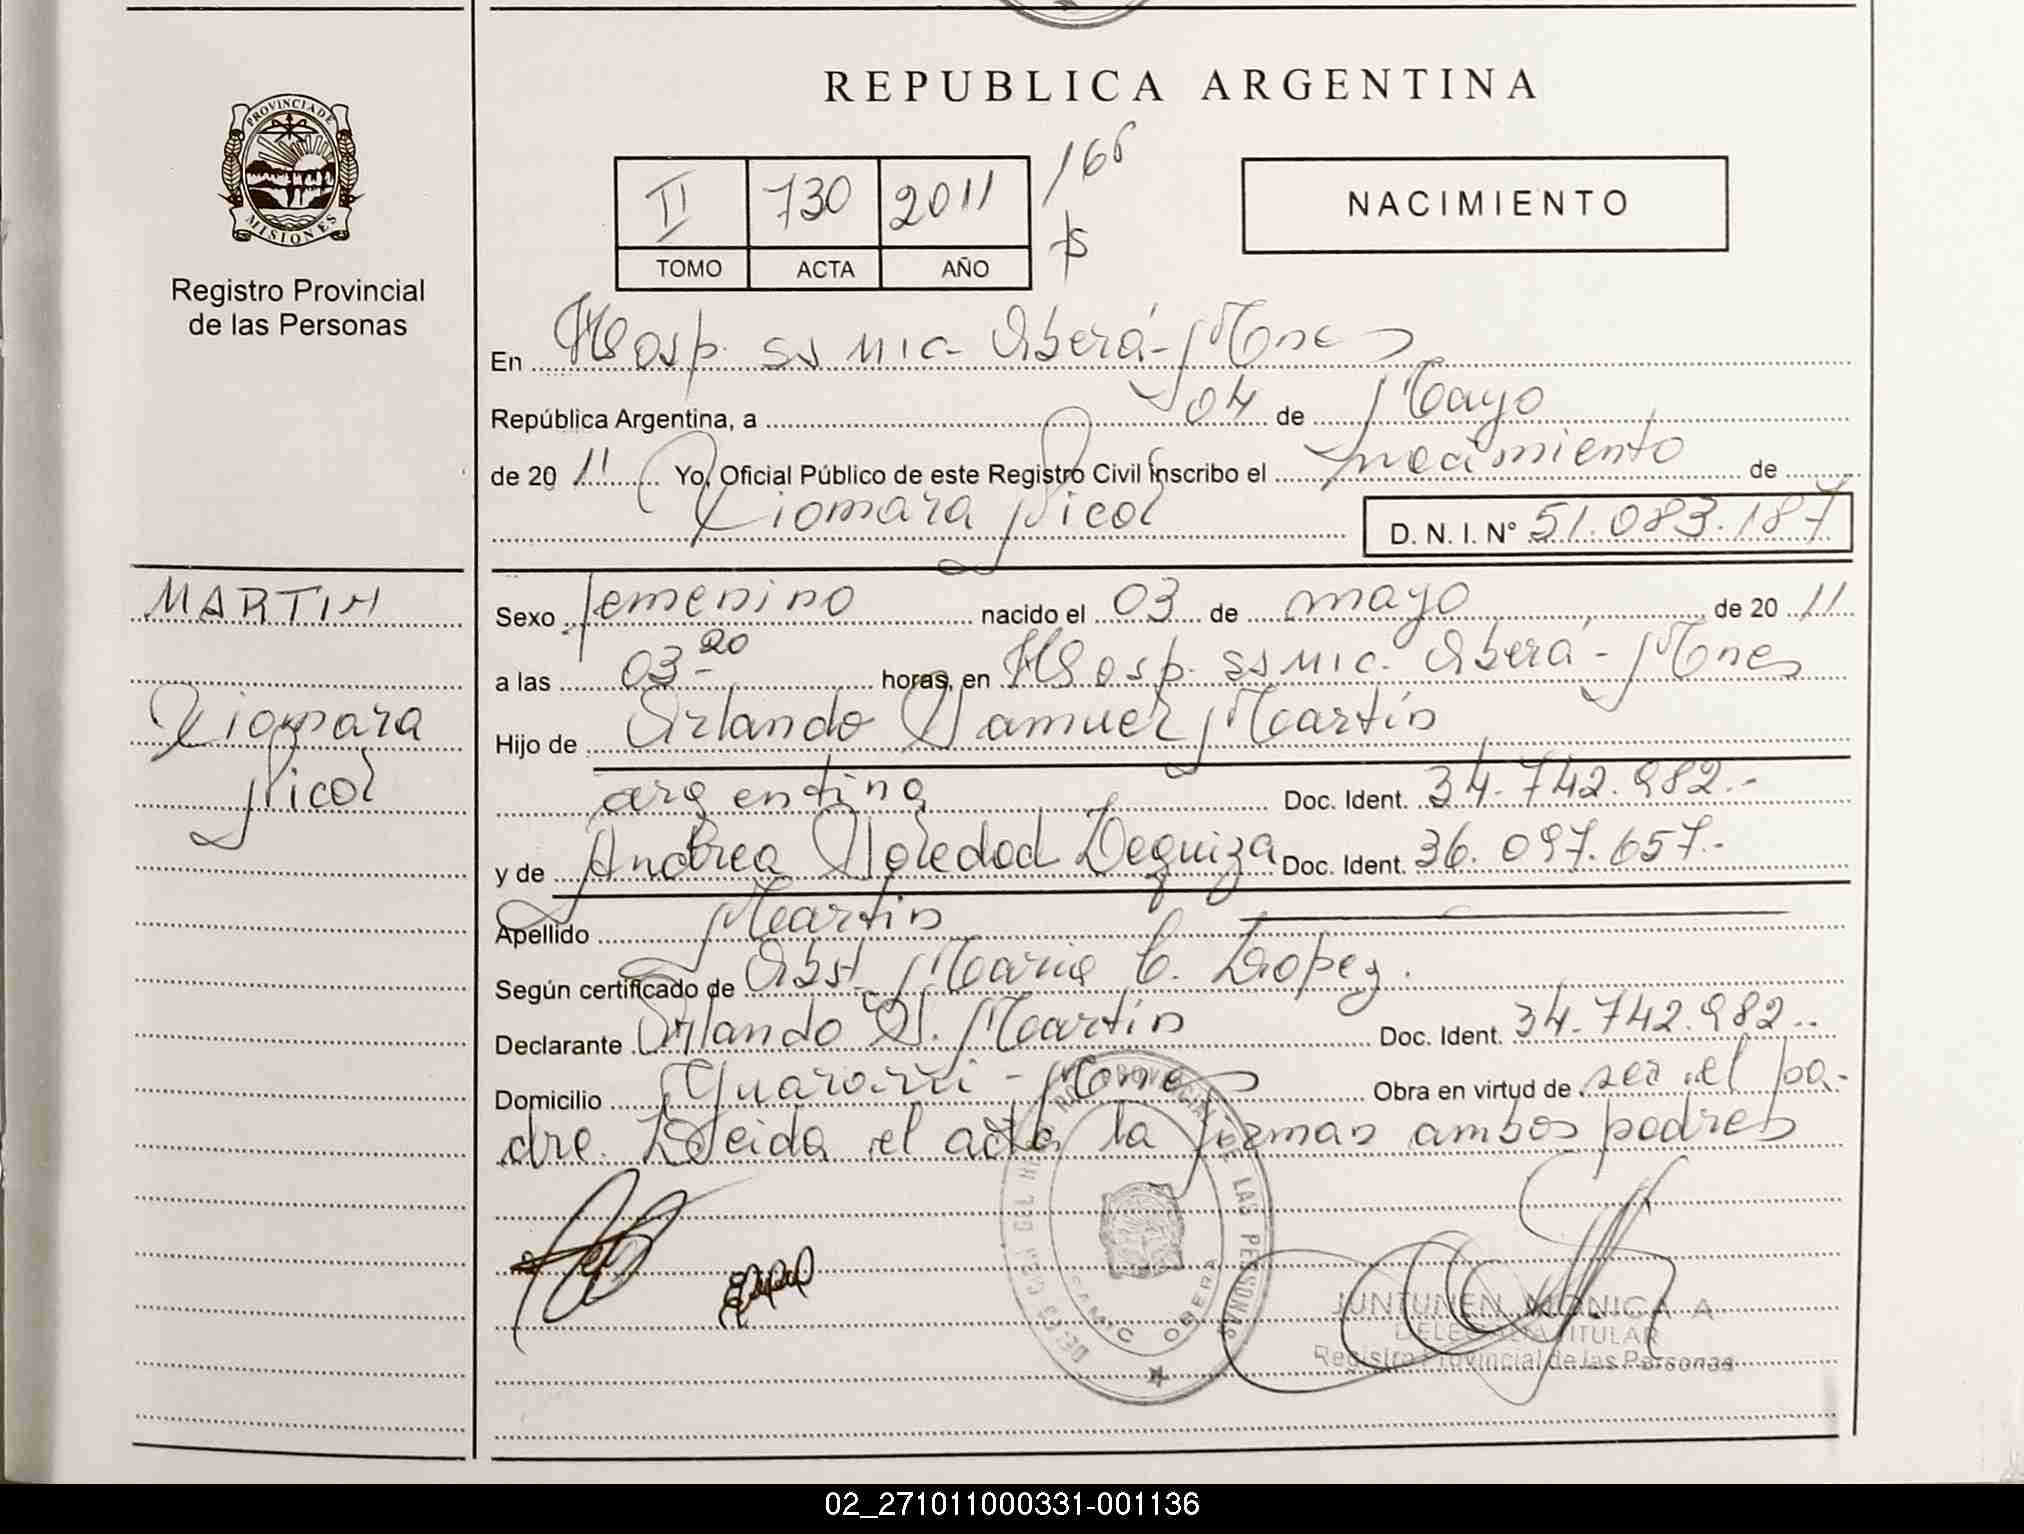 REPUBLICA ARGENTINA
PROVINCIA DE
MISIONES
Registro Provincial
de las Personas
II 730 2011 /66
TOMO ACTA AÑO
NACIMIENTO
En Hosp. ss mic- Oberá- Mnes
República Argentina, a 04 de Mayo
de 20 11 Yo, Oficial Público de este Registro Civil inscribo el nacimiento de
Xiomara Nicol D. N. I. N° 51.083.187
MARTIN
Xiomara
Nicol
Sexo femenino nacido el 03 de mayo de 20 11
a las 03-20 horas, en Hosp. ss mic. Oberá- Mnes
Hijo de Orlando Samuel Martin
argentina Doc. Ident. 34.742.982.-
y de Andrea Soledad Dequiza Doc. Ident. 36.097.657.-
Apellido Martin
Según certificado de Obst. Maria C. Lopez.
Declarante Orlando S. Martin Doc. Ident. 34.742.982.-
Domicilio Guarani - Mnes Obra en virtud de ser el pa-
dre. Leida el acta la firman ambos padres
PROVINCIAL DE LAS PERSONAS
SAMIC OBERA
JUNTUNEN MONICA A
DELEGADA TITULAR
Registro Provincial de las Personas
02_271011000331-001136